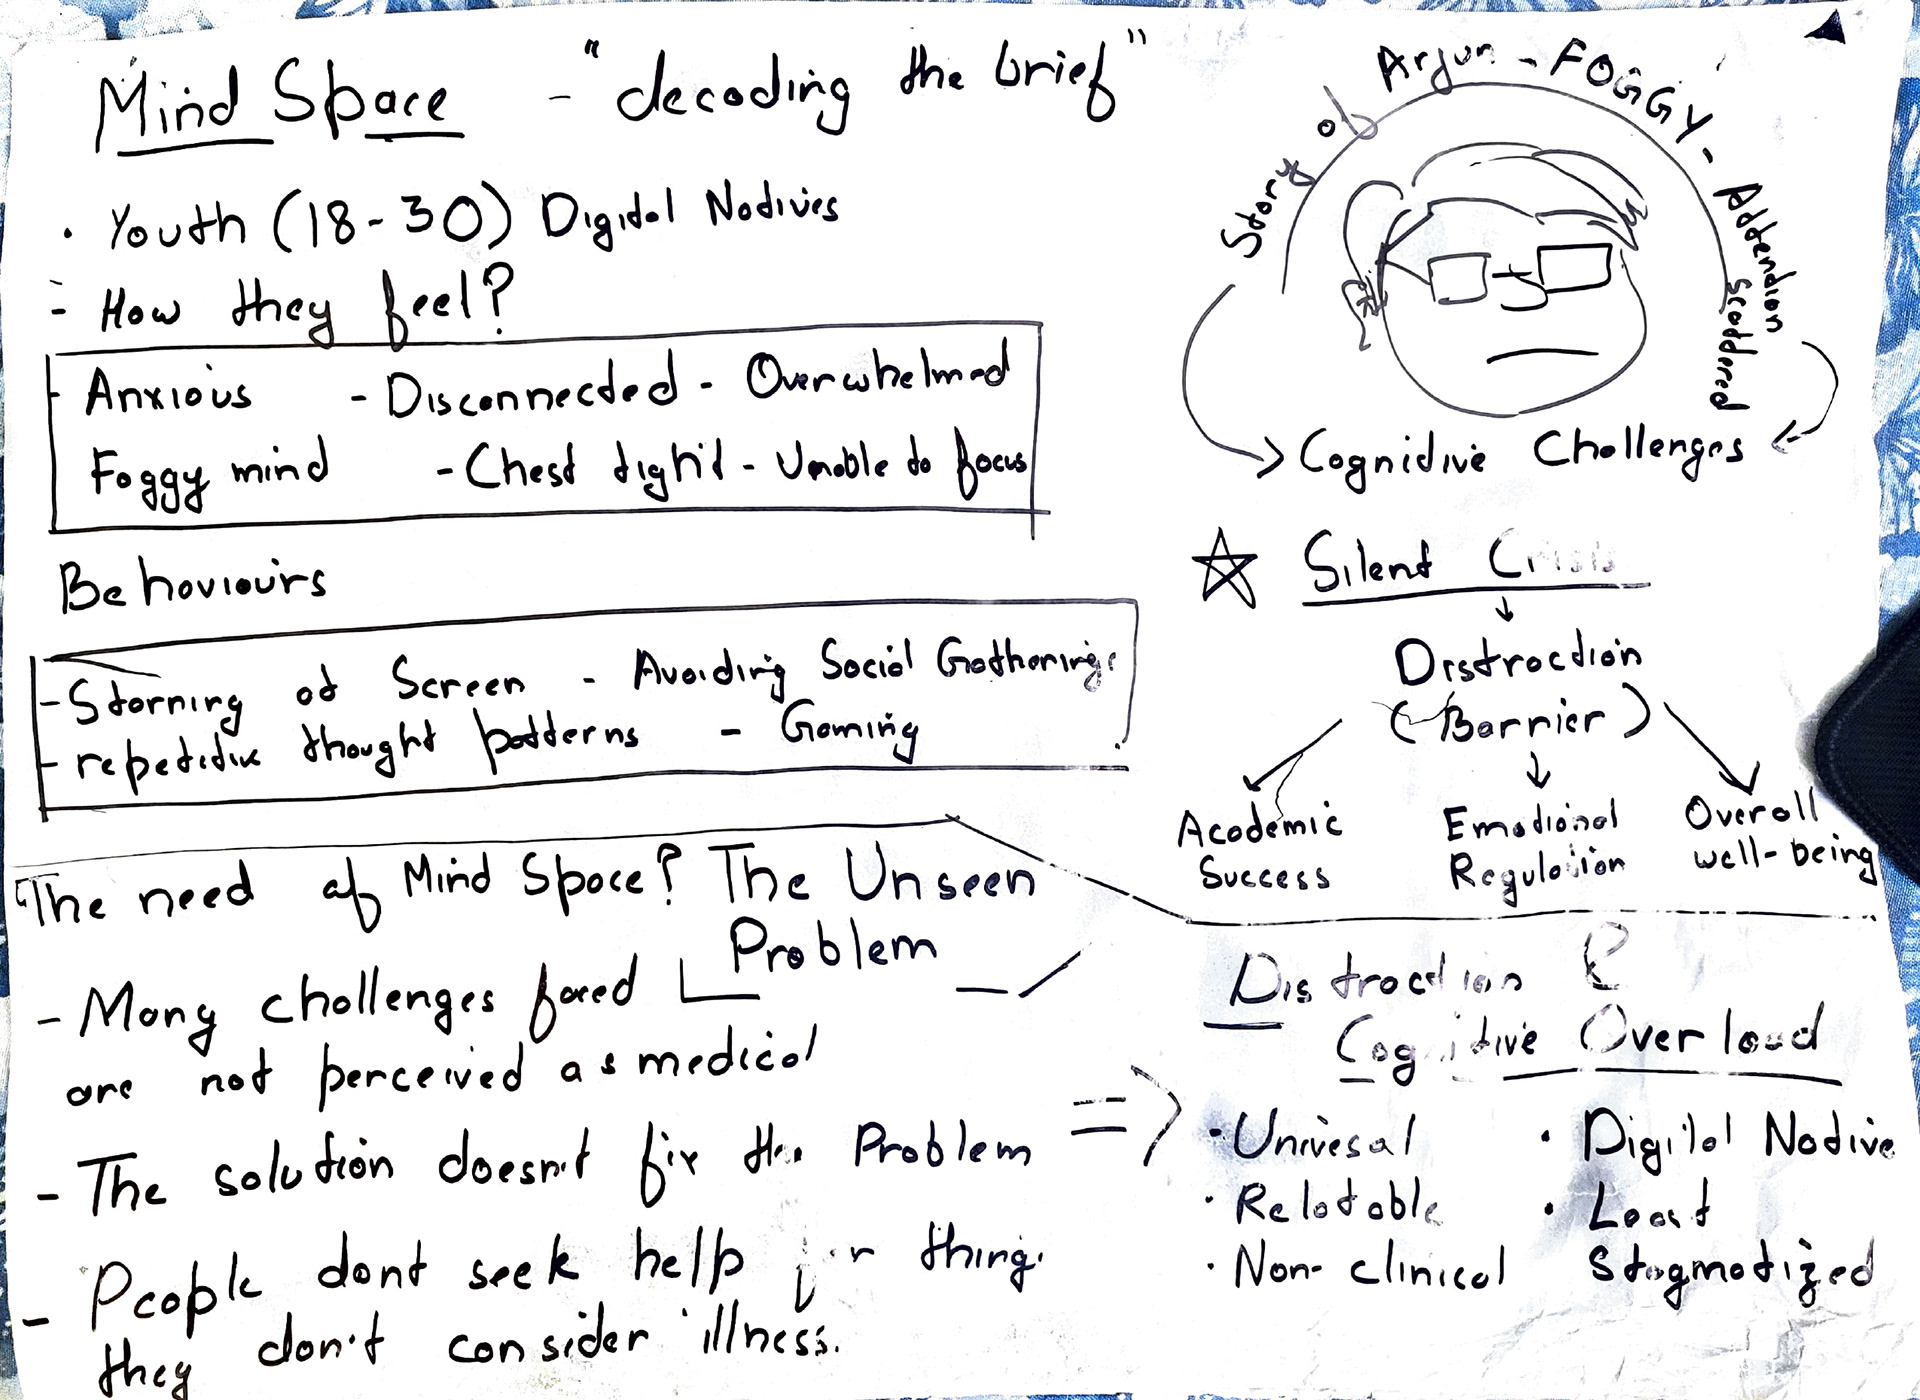 Mind Space - "decoding the brief"
• Youth (18-30) Digital Natives
- How they feel?
- Anxious - Disconnected - Overwhelmed
Foggy mind - Chest tight - Unable to focus
Behaviours
- Starring at Screen - Avoiding Social Gatherings
- repetitive thought patterns - Gaming
The need of Mind Space? The Unseen
Problem
- Many challenges faced
are not perceived as medical
- The solution doesn't fix the Problem
- People dont seek help for thing.
they don't consider illness.
Story of Arjun - FOGGY - Attention
Scattered
Cognitive Challenges
Silent Crisis
Distraction
(Barrier)
Academic
Success
Emotional
Regulation
Overall
well-being
Distraction &
Cognitive Overload
=>
• Univesal
• Relatable
• Non-clinical
• Digital Native
• Least
Stagmatized